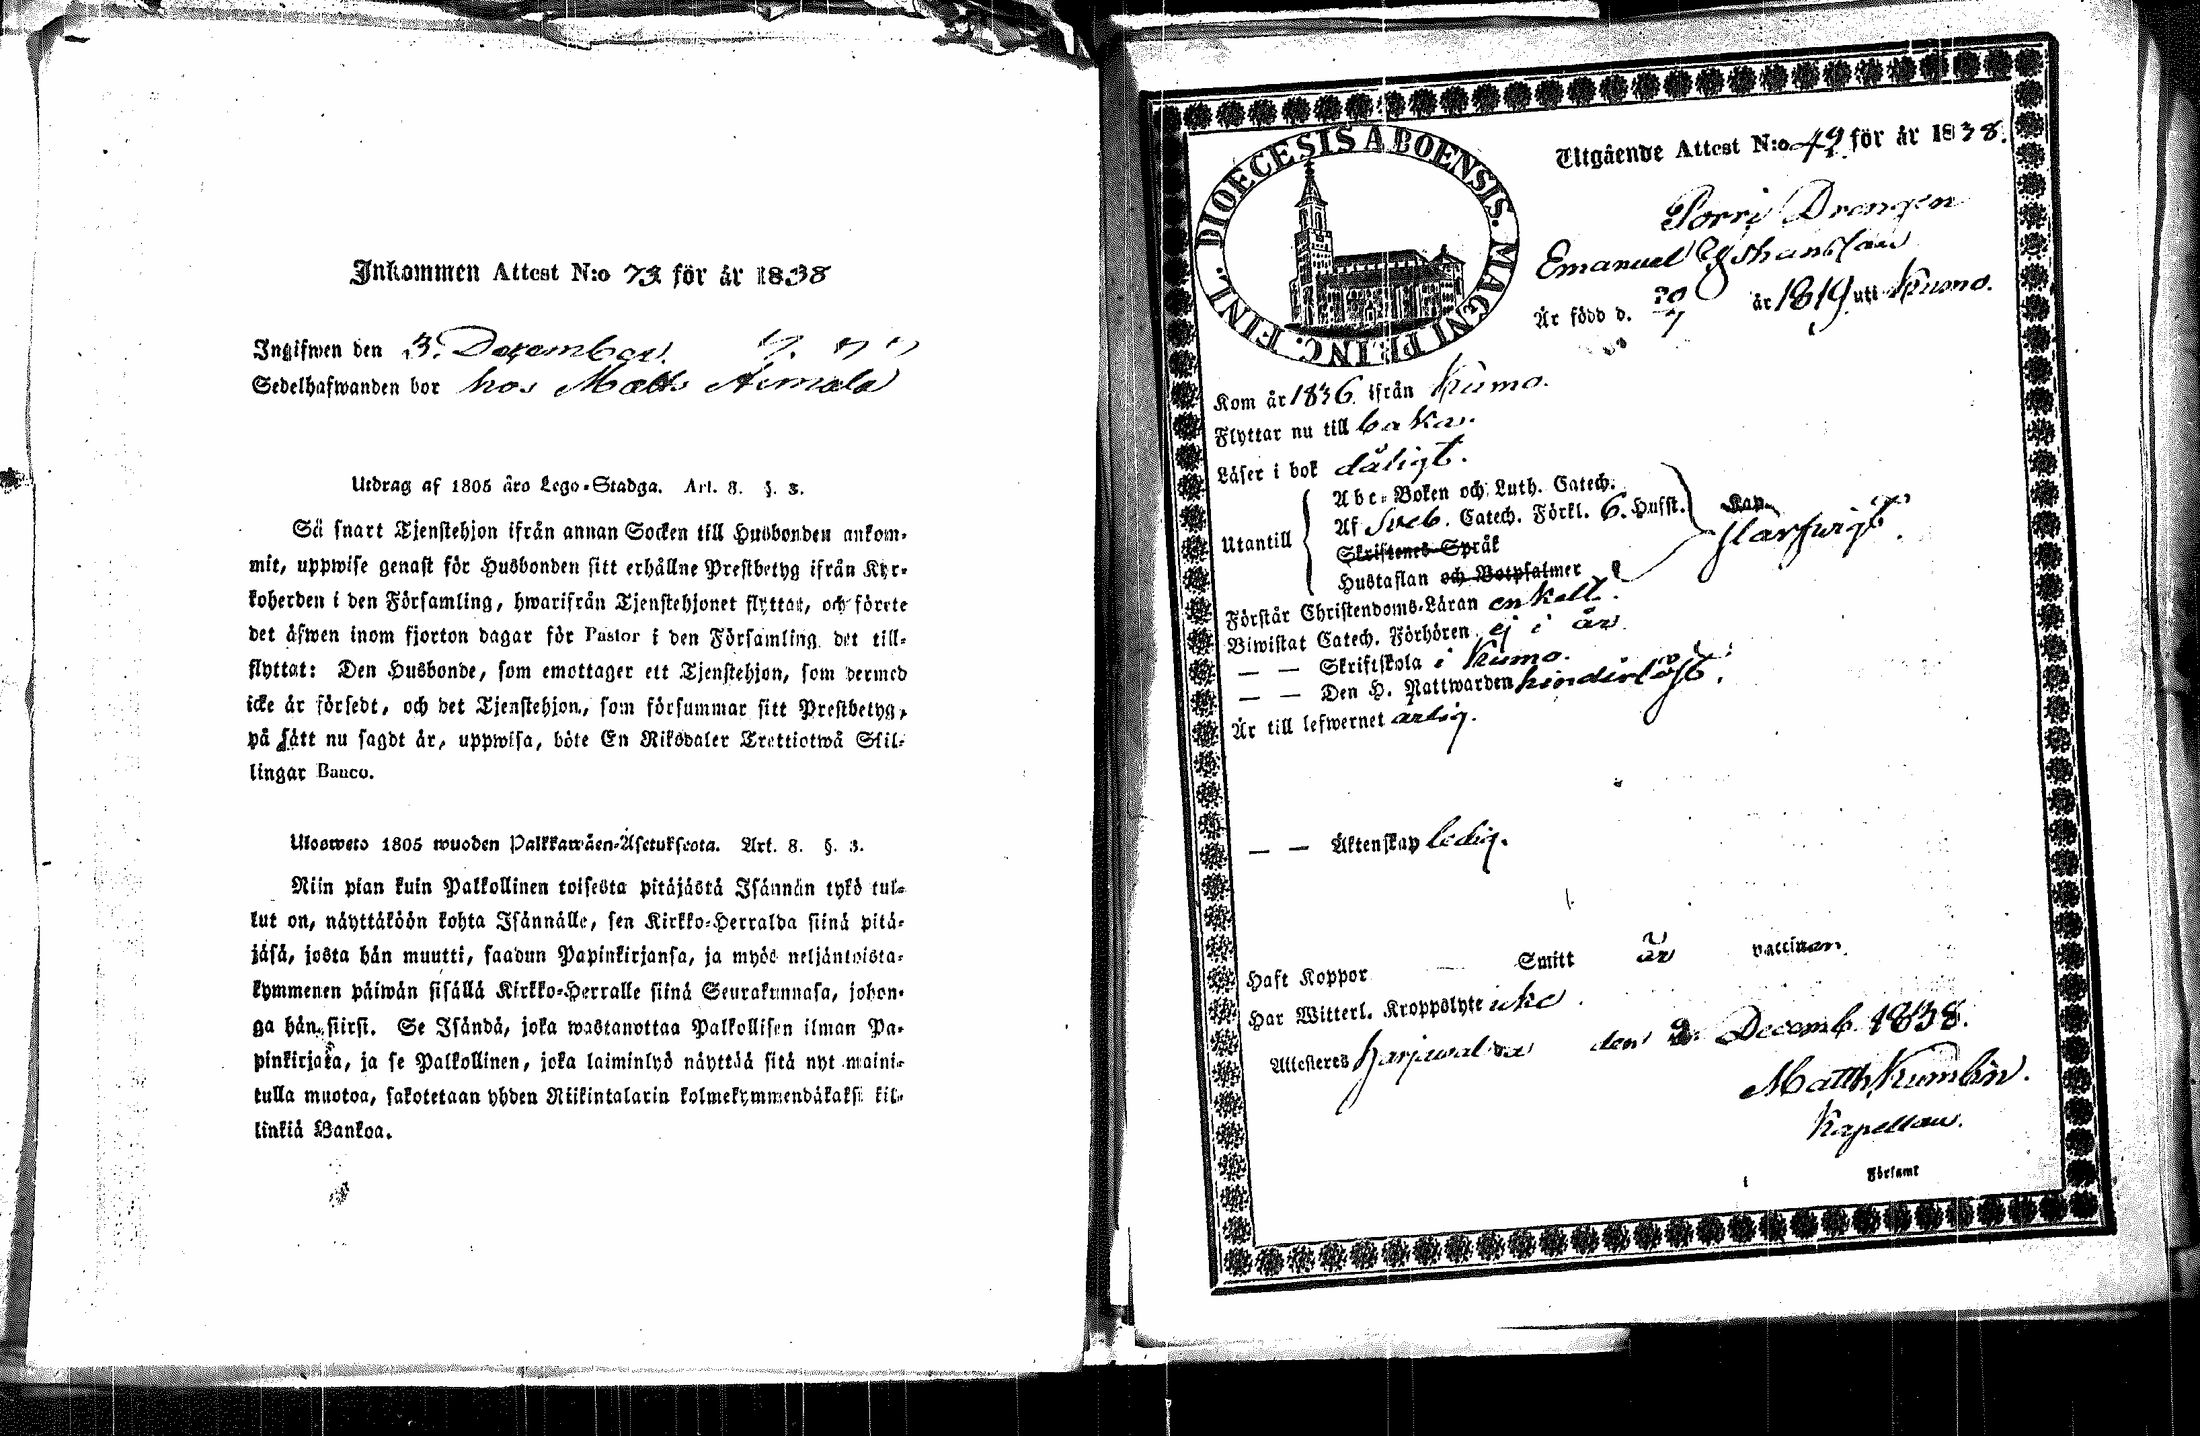 Inkommen Attest N:o 73 för år 1838
Ingifwen den 3. December.
Sedelhafwanden bor hos Matts
Utdrag af 1805 års Lego-Stadga. Art. 8. §. 3.
Så snart Tjenstehjon ifrån annan Socken till Husbonden ankom-
mit, uppwise genast för Husbonden sitt erhållne Prestbetyg ifrån Kyr-
koherden i den Församling, hwarifrån Tjenstehjonet flyttat, och förete
det äfwen inom fjorton dagar för Pastor i den Församling det till-
flyttat: Den Husbonde, som emottager ett Tjenstehjon, som dermed
icke är försedt, och det Tjenstehjon, som försummar sitt Prestbetyg,
på sätt nu sagdt är, uppwisa, böte En Riksdaler Trettiotwå Skil-
lingar Banco.
Ulosweto 1805 wuoden Palkkawäen-Asetuksesta. Art. 8. §. 3.
Niin pian kuin Palkollinen toisesta pitäjästä Isännän tykö tul-
lut on, näyttäköön kohta Isännälle, sen Kirkko-Herralda siinä pitä-
jäsä, josta hän muutti, saadun Papinkirjansa, ja myös neljäntoista-
kymmenen päiwän sisällä Kirkko-Herralle siinä Seurakunnasa, johon-
ga hän siirsi. Se Isändä, joka wastanottaa Palkollisen ilman Pa-
pinkirjata, ja se Palkollinen, joka laiminlyö näyttää sitä nyt maini-
tulla muotoa, sakotetaan yhden Riikintalarin kolmekymmendäkaksi kil-
linkiä Bankoa.
DIOECESIS ABOENSIS. MAGNI PRINC. FINL.
Utgående Attest N:o 49 för år 1838.
Sorri Drengen
Emanuel
Är född d. 20/7 år 1819 uti Kumo.
Kom år 1836 ifrån Kumo.
Flyttar nu till baka.
Läser i bok dåligt.
Abc-Boken och Luth. Catech.
Utantill Af Sveb. Catech. Förkl. 6. Hufst.
Skriftenes Språk
Hustaflan och Botpsalmer
Kap.
Hartwigt.
Förstår Christendoms-Läran enkelt.
Biwistat Catech. Förhören ej i år
— — Skriftskola i Kumo.
— — Den H. Nattwarden hinderlöst.
Är till lefwernet ärlig.
— — Äktenskap ledig.
Haft Koppor — Smitt är vaccinen.
Har Witterl. Kroppslyte icke.
Attesteres Harjawalda den 2 Decemb. 1838.
Matth. Kumlin.
Kapellan.
Församl